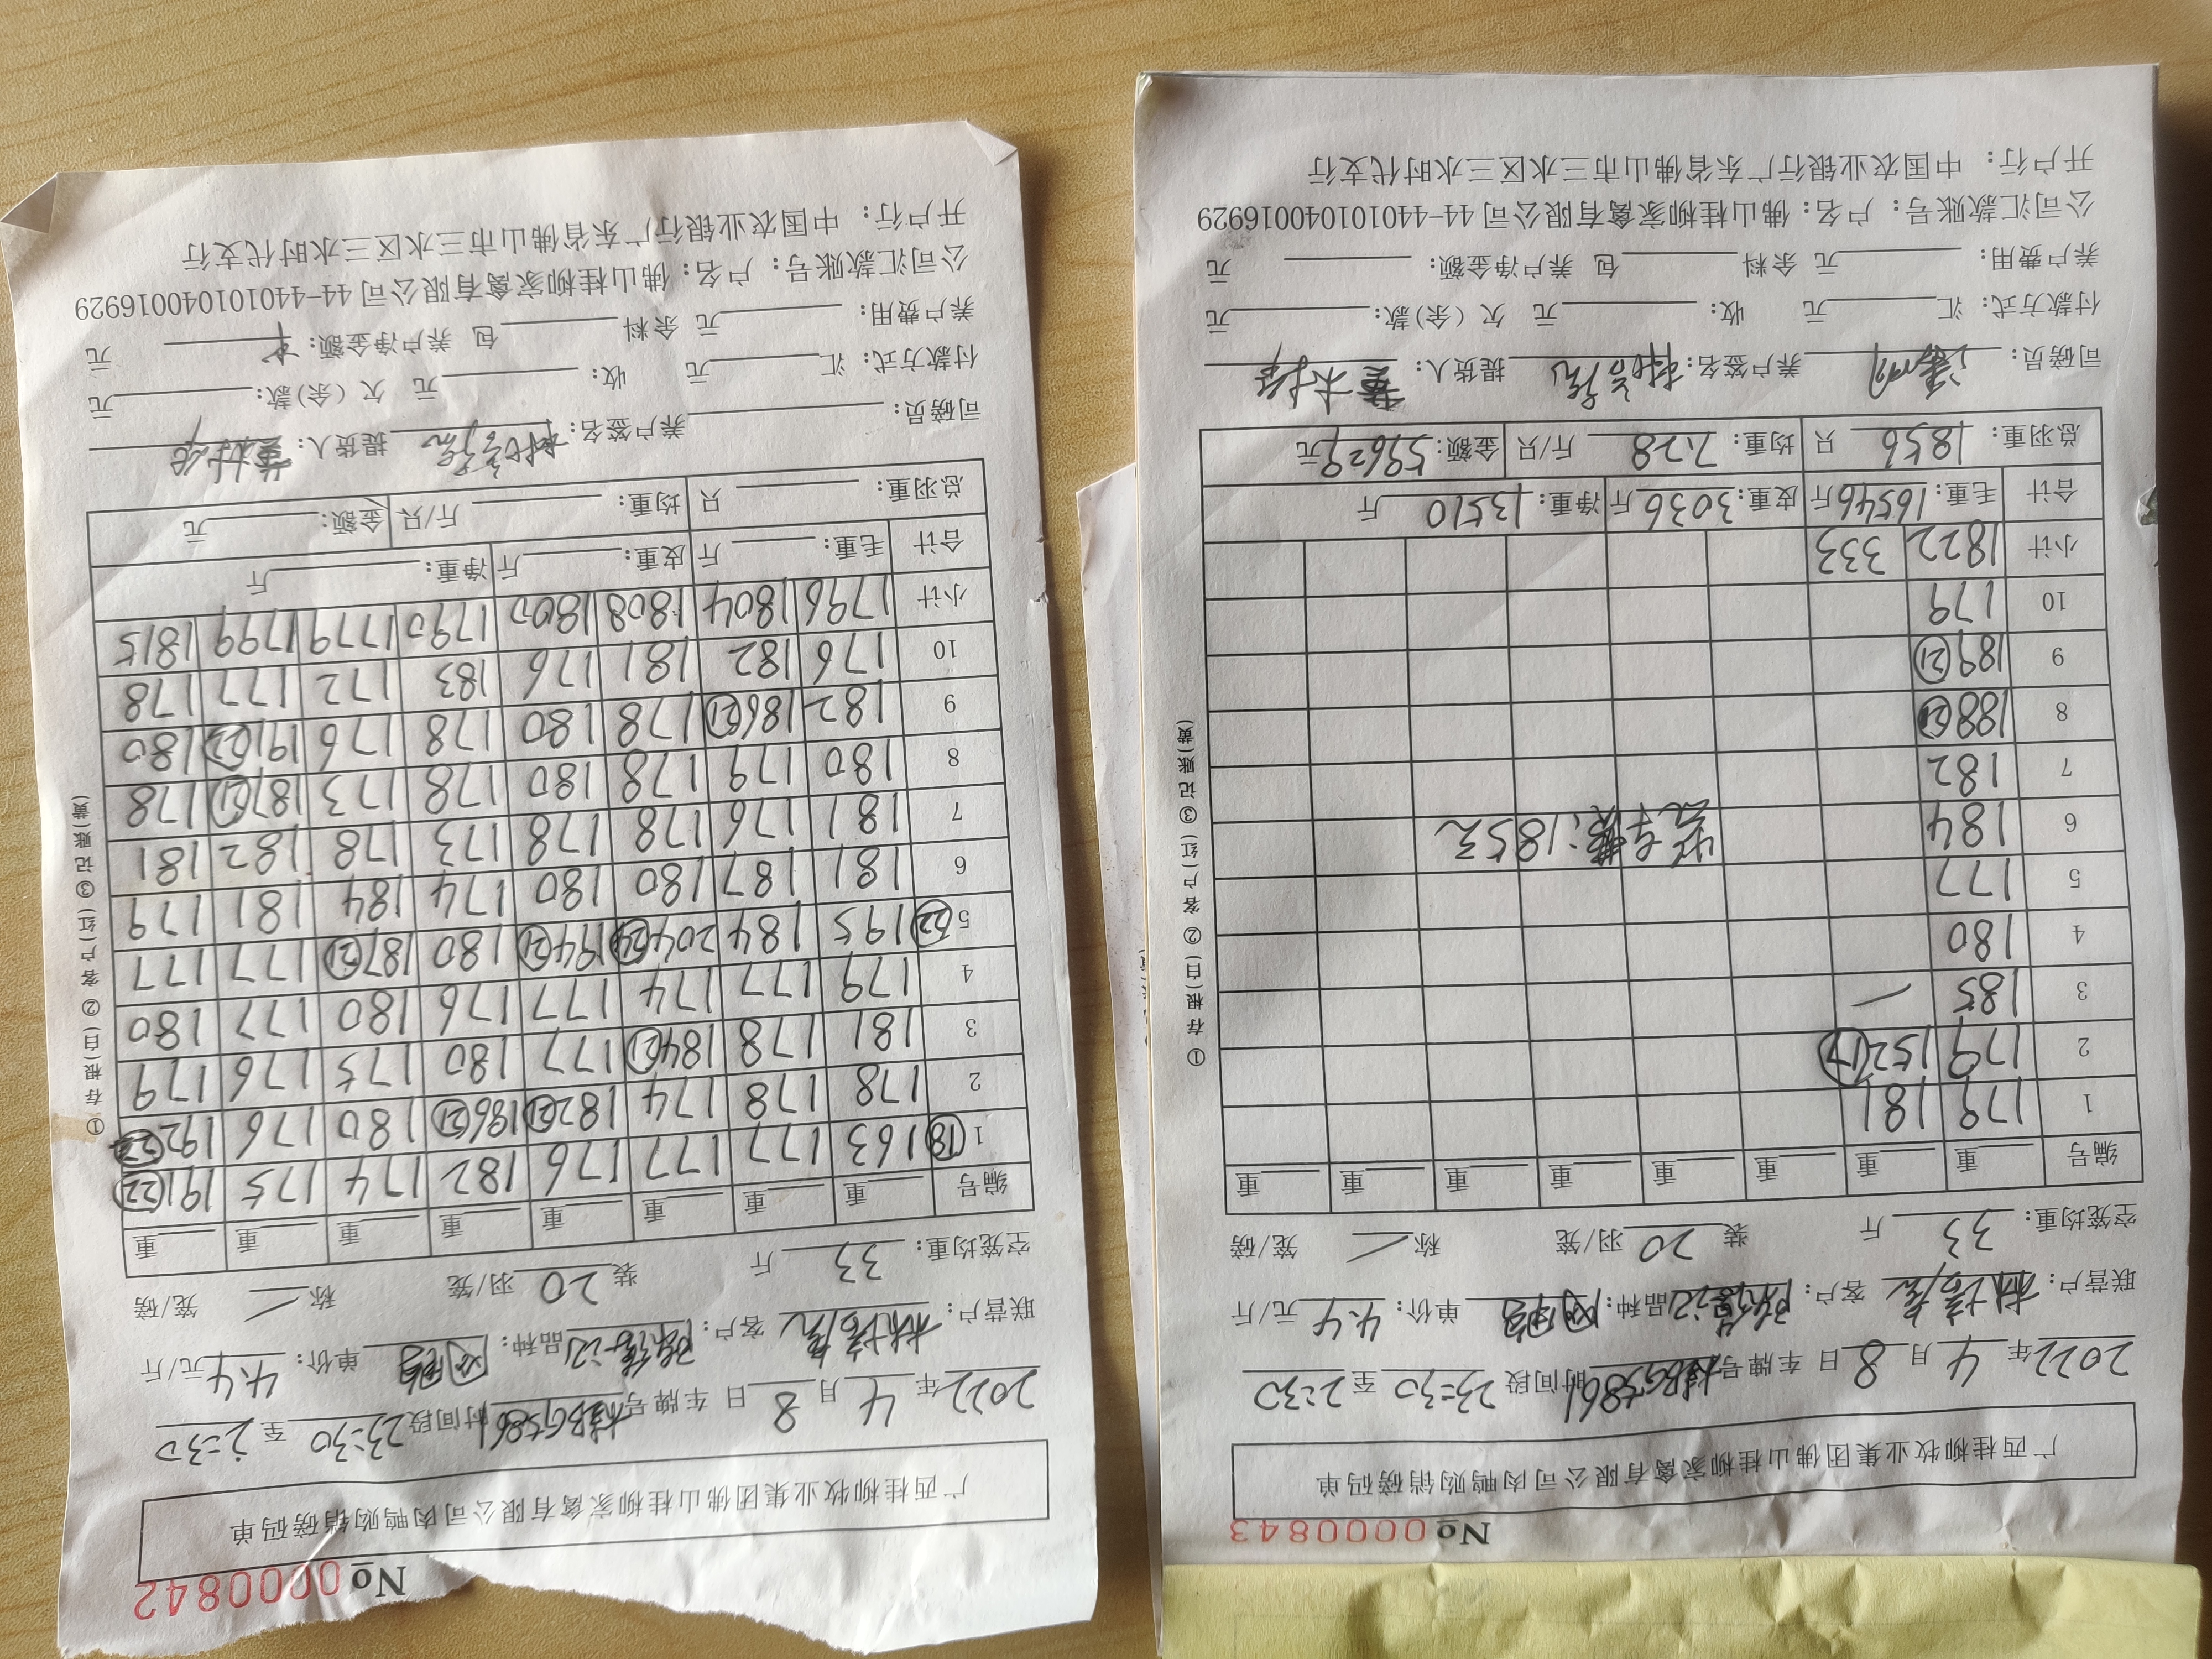 №0000843
广西桂柳牧业集团佛山桂柳家禽有限公司肉鸭购销磅码单
2022年 4 月 8 日 车牌号 时间段 23:30 至 2:30
联营户: 客户: 品种: 单价: 4.4 元/斤
空笼均重: 33 斤 装 20 羽/笼 称 笼/磅
编号 重 重 重 重 重 重 重 重
1 179 181
2 179 152 (17)
3 185
4 180
5 177
6 184 装车费:185元
7 182
8 188 (21)
9 189 (21)
10 179
小计 1822 333
合计 毛重: 16546 斤 皮重: 3036 斤 净重: 13510 斤
总羽重: 1856 只 均重: 7.28 斤/只 金额: 59629 元
司磅员: 养户签名: 提货人:
付款方式: 汇 元 收: 元 欠(余)款: 元
养户费用: 元 余料 包 养户净金额: 元
公司汇款账号: 户名: 佛山桂柳家禽有限公司 44-440101040016929
开户行: 中国农业银行广东省佛山市三水区三水时代支行
①存根(白)②客户(红)③记账(黄)
№0000842
广西桂柳牧业集团佛山桂柳家禽有限公司肉鸭购销磅码单
2022年 4 月 8 日 车牌号 时间段 23:30 至 2:30
联营户: 客户: 品种: 单价: 4.4 元/斤
空笼均重: 33 斤 装 20 羽/笼 称 笼/磅
编号 重 重 重 重 重 重 重 重
1 (18) 163 177 177 176 182 174 175 191 (22)
2 178 178 174 182 (21) 186 (21) 180 176 192 (22)
3 181 178 184 (21) 177 180 175 176 179
4 179 177 174 177 176 180 177 180
5 (22) 195 184 204 (24) 194 (21) 180 187 (21) 177 177
6 181 187 180 180 174 184 181 179
7 181 176 178 178 173 178 182 181
8 180 179 178 180 178 173 187 (21) 178
9 182 186 (21) 178 180 178 176 191 (22) 180
10 176 182 181 176 183 172 177 178
小计 1796 1804 1808 1800 1790 1779 1799 1815
合计 毛重: 斤 皮重: 斤 净重: 斤
总羽重: 只 均重: 斤/只 金额: 元
司磅员: 养户签名: 提货人:
付款方式: 汇 元 收: 元 欠(余)款: 元
养户费用: 元 余料 包 养户净金额: 元
公司汇款账号: 户名: 佛山桂柳家禽有限公司 44-440101040016929
开户行: 中国农业银行广东省佛山市三水区三水时代支行
①存根(白)②客户(红)③记账(黄)